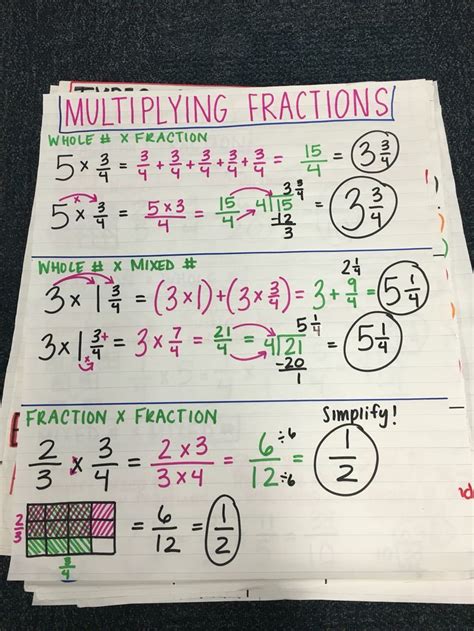 TYPES
MULTIPLYING FRACTIONS
WHOLE # X FRACTION
5 × 3/4 = 3/4 + 3/4 + 3/4 + 3/4 + 3/4 = 15/4 = 3 3/4
5 × 3/4 = 5×3/4 = 15/4 = 4)15 3 3/4 -12 3 = 3 3/4
WHOLE # X MIXED #
3 × 1 3/4 = (3×1)+(3×3/4) = 3 + 9/4 2 1/4 = 5 1/4
3 × 1 3/4 + × = 3 × 7/4 = 21/4 = 4)21 5 1/4 -20 1 = 5 1/4
FRACTION X FRACTION
Simplify!
2/3 × 3/4 = 2×3/3×4 = 6/12 ÷6 ÷6 = 1/2
2/3 3/4 = 6/12 = 1/2